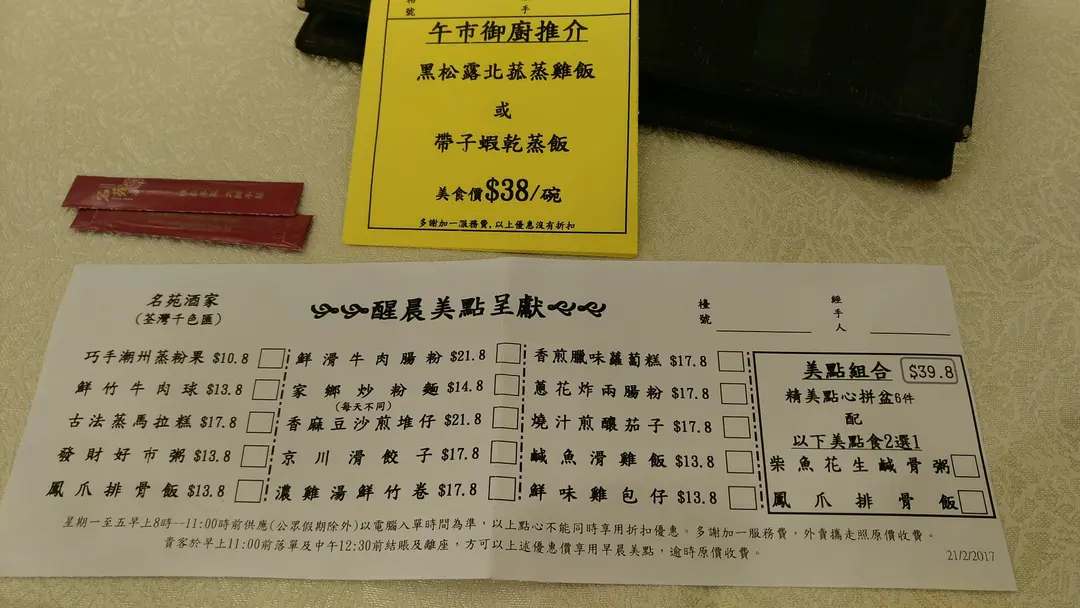 號
手
午市御廚推介
黑松露北菰蒸雞飯
或
帶子蝦乾蒸飯
美食價$38/碗
多謝加一服務費,以上優惠沒有折扣
名苑酒家
(荃灣千色匯)
醒晨美點呈獻
檯號
經手人
巧手潮州蒸粉果 $10.8
鮮竹牛肉球 $13.8
古法蒸馬拉糕 $17.8
發財好市粥 $13.8
鳳爪排骨飯 $13.8
鮮滑牛肉腸粉 $21.8
家鄉炒粉麵 $14.8
(每天不同)
香麻豆沙煎堆仔 $21.8
京川滑餃子 $17.8
濃雞湯鮮竹卷 $17.8
香煎臘味蘿蔔糕 $17.8
蔥花炸兩腸粉 $17.8
燒汁煎釀茄子 $17.8
鹹魚滑雞飯 $13.8
鮮味雞包仔 $13.8
美點組合 $39.8
精美點心拼盆6件
配
以下美點食2選1
柴魚花生鹹骨粥
鳳爪排骨飯
星期一至五早上8時--11:00時前供應(公眾假期除外)以電腦入單時間為準,以上點心不能同時享用折扣優惠。多謝加一服務費,外賣攜走照原價收費。
貴客於早上11:00前落單及中午12:30前結賬及離座,方可以上述優惠價享用早晨美點,逾時原價收費。
21/2/2017